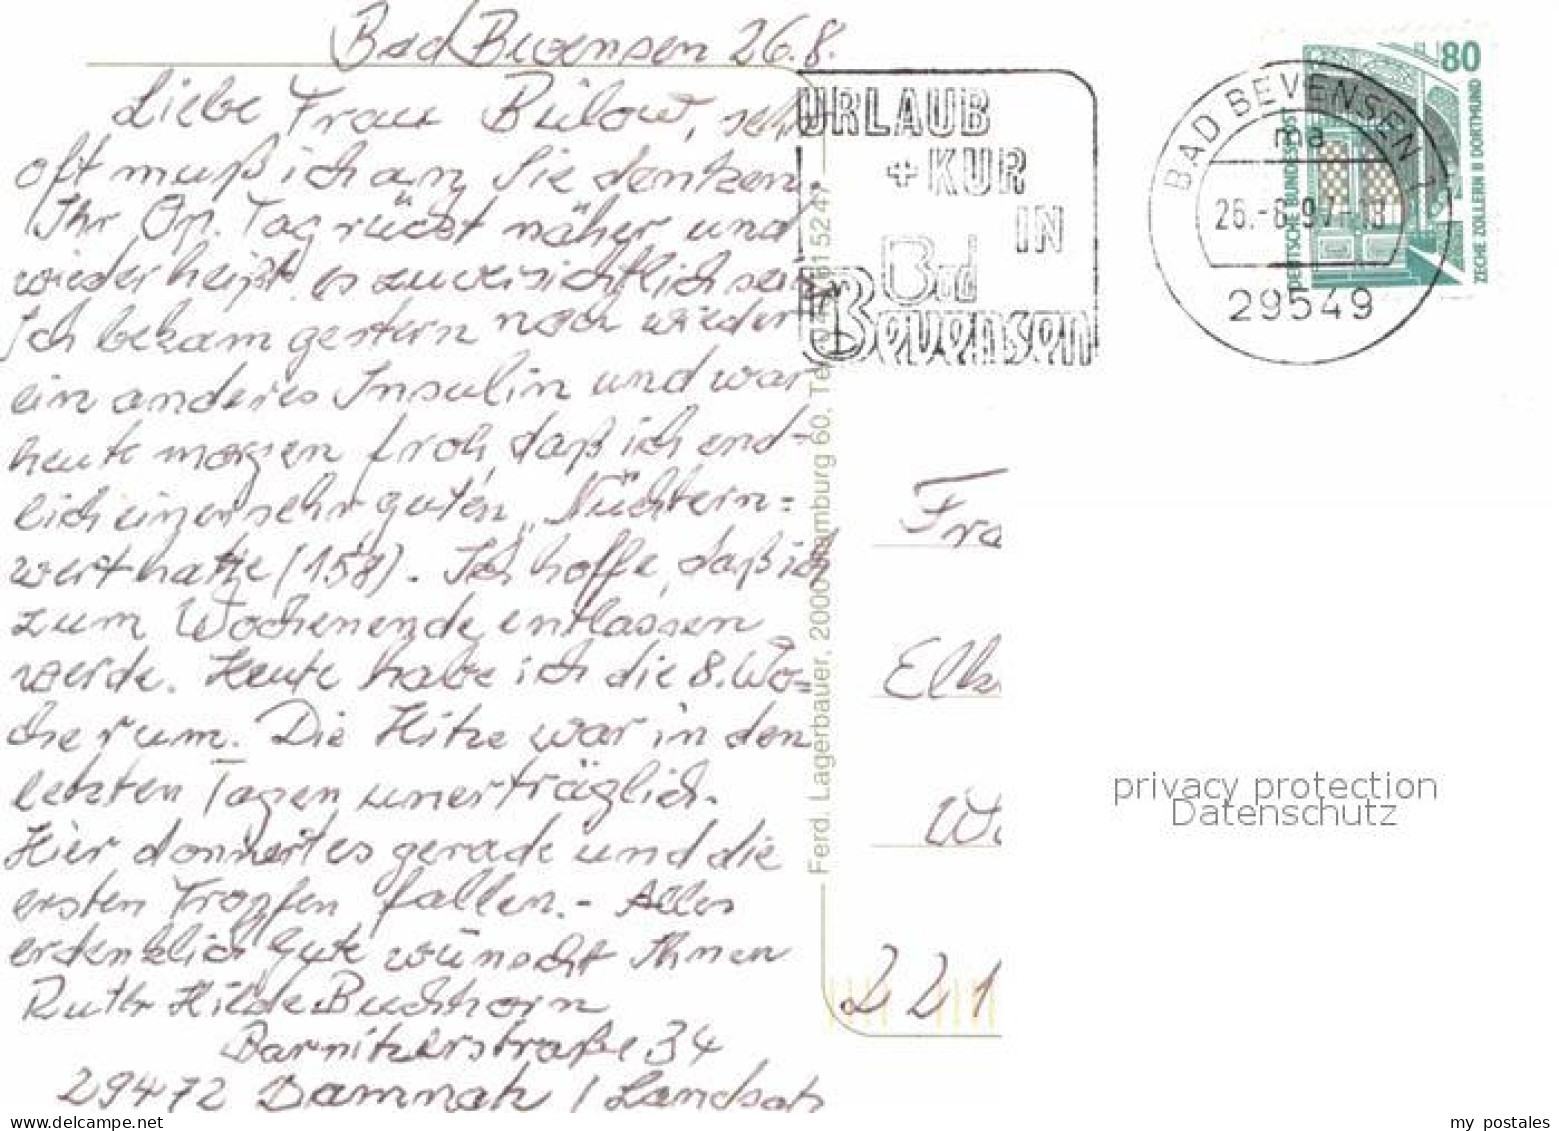 Bad Bevensen 26.8.
Liebe Frau Bülow, sehr
oft muß ich an Sie denken.
Ihr Op. Tag rückt näher und
wieder heißt es zuversichtlich sein
Ich bekam gestern noch wieder
ein anderes Insulin und war
heute morgen froh, daß ich end-
lich einen sehr guten „Nüchtern-
wert hatte (158). Ich hoffe, daß ich
zum Wochenende entlassen
werde. Heute habe ich die 8. Wo=
che rum. Die Hitze war in den
letzten Tagen unerträglich.
Hier donnert es gerade und die
ersten Tropfen fallen. - Alles
erdenklich Gute wünscht Ihnen
Ruth Hilde Buchhorn
Barnitzerstraße 34
29472 Damnatz / Landsatz
Ferd. Lagerbauer, 2000 Hamburg 60. Tel.
URLAUB
+ KUR
IN
Bad
Bevensen
BAD BEVENSEN 1
ma
26.-8.97-18
29549
80
DEUTSCHE BUNDESPOST
ZECHE ZOLLERN II DORTMUND
Fra
Elk
221
privacy protection
Datenschutz
www.delcampe.net
my_postales